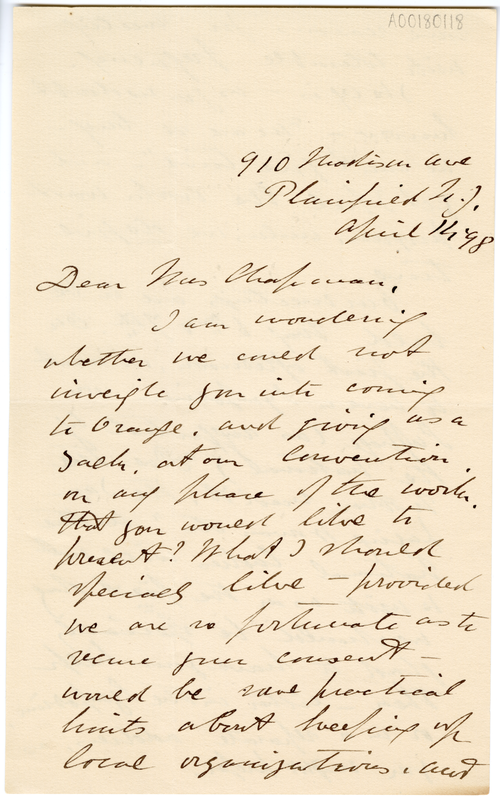 A00180118
910 Madison Ave
Plainfield N.J.
April 14, '98
Dear Mrs Chapman,
I am wondering
whether we could not
inveigle you into coming
to Orange, and giving us a
talk, at our Convention,
on any phase of the work,
that you would like to
present? What I should
specially like – provided
we are so fortunate as to
secure your consent –
would be some practical
hints about keeping up
local organizations, and